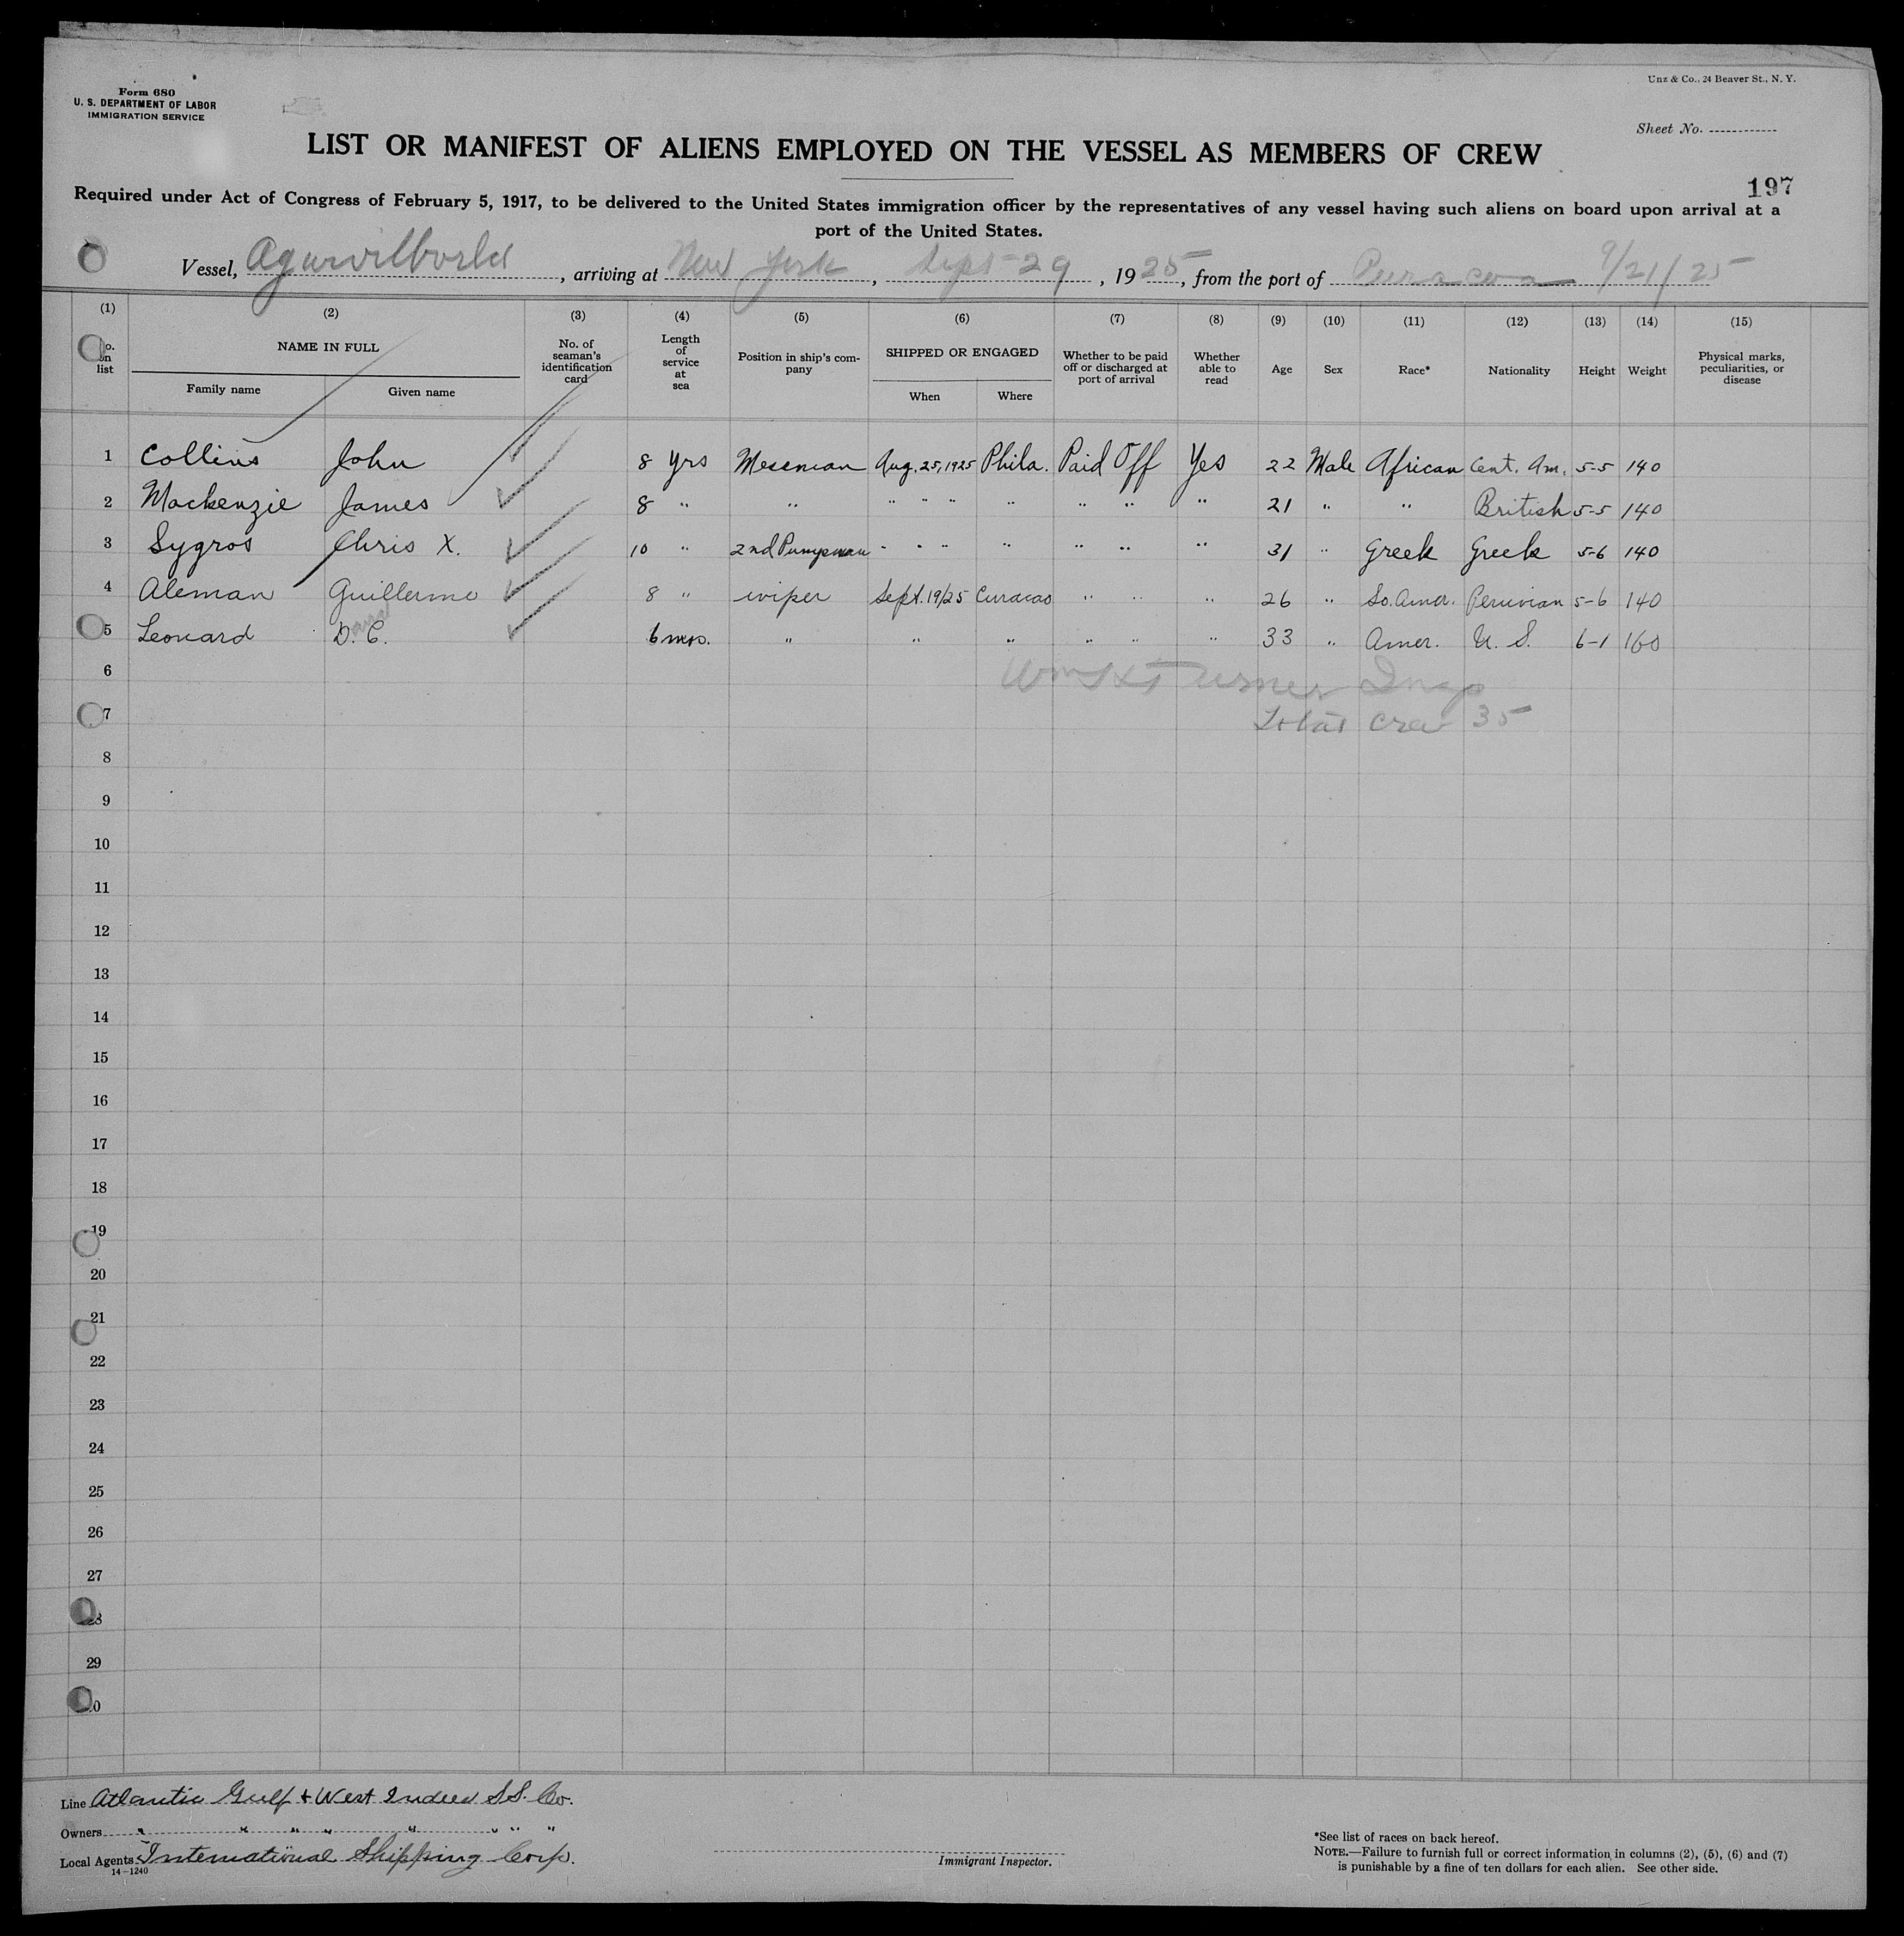 Form 680
U. S. DEPARTMENT OF LABOR
IMMIGRATION SERVICE
Unz & Co., 24 Beaver St., N. Y.
Sheet No.
LIST OR MANIFEST OF ALIENS EMPLOYED ON THE VESSEL AS MEMBERS OF CREW
197
Required under Act of Congress of February 5, 1917, to be delivered to the United States immigration officer by the representatives of any vessel having such aliens on board upon arrival at a
port of the United States.
Vessel, Agwiworld, arriving at New York, Sept 29, 1925, from the port of Curacoa 9/21/25
(1) (2) (3) (4) (5) (6) (7) (8) (9) (10) (11) (12) (13) (14) (15)
No. on list
NAME IN FULL
Family name Given name
No. of seaman's identification card
Length of service at sea
Position in ship's company
SHIPPED OR ENGAGED
When Where
Whether to be paid off or discharged at port of arrival
Whether able to read
Age
Sex
Race*
Nationality
Height
Weight
Physical marks, peculiarities, or disease
1 Collins John 8 yrs Messman Aug. 25, 1925 Phila. Paid Off Yes 22 Male African Cent. Am. 5-5 140
2 Mackenzie James 8 " " " " " " " " " 21 " " British 5-5 140
3 Sygros Chris X. 10 " 2nd Pumpman " " " " " " " 31 " Greek Greek 5-6 140
4 Aleman Guillermo 8 " wiper Sept. 19/25 Curacao " " " 26 " So. Amer. Peruvian 5-6 140
5 Leonard D. C. 6 mos. " " " " " " 33 " Amer. U. S. 6-1 160
6 Turner Insp
7 Total crew 35
8
9
10
11
12
13
14
15
16
17
18
19
20
21
22
23
24
25
26
27
28
29
30
Line Atlantic Gulf & West Indies S.S. Co.
Owners " " " " " " " "
Local Agents International Shipping Corp.
14-1240
Immigrant Inspector.
*See list of races on back hereof.
NOTE.—Failure to furnish full or correct information in columns (2), (5), (6) and (7)
is punishable by a fine of ten dollars for each alien. See other side.